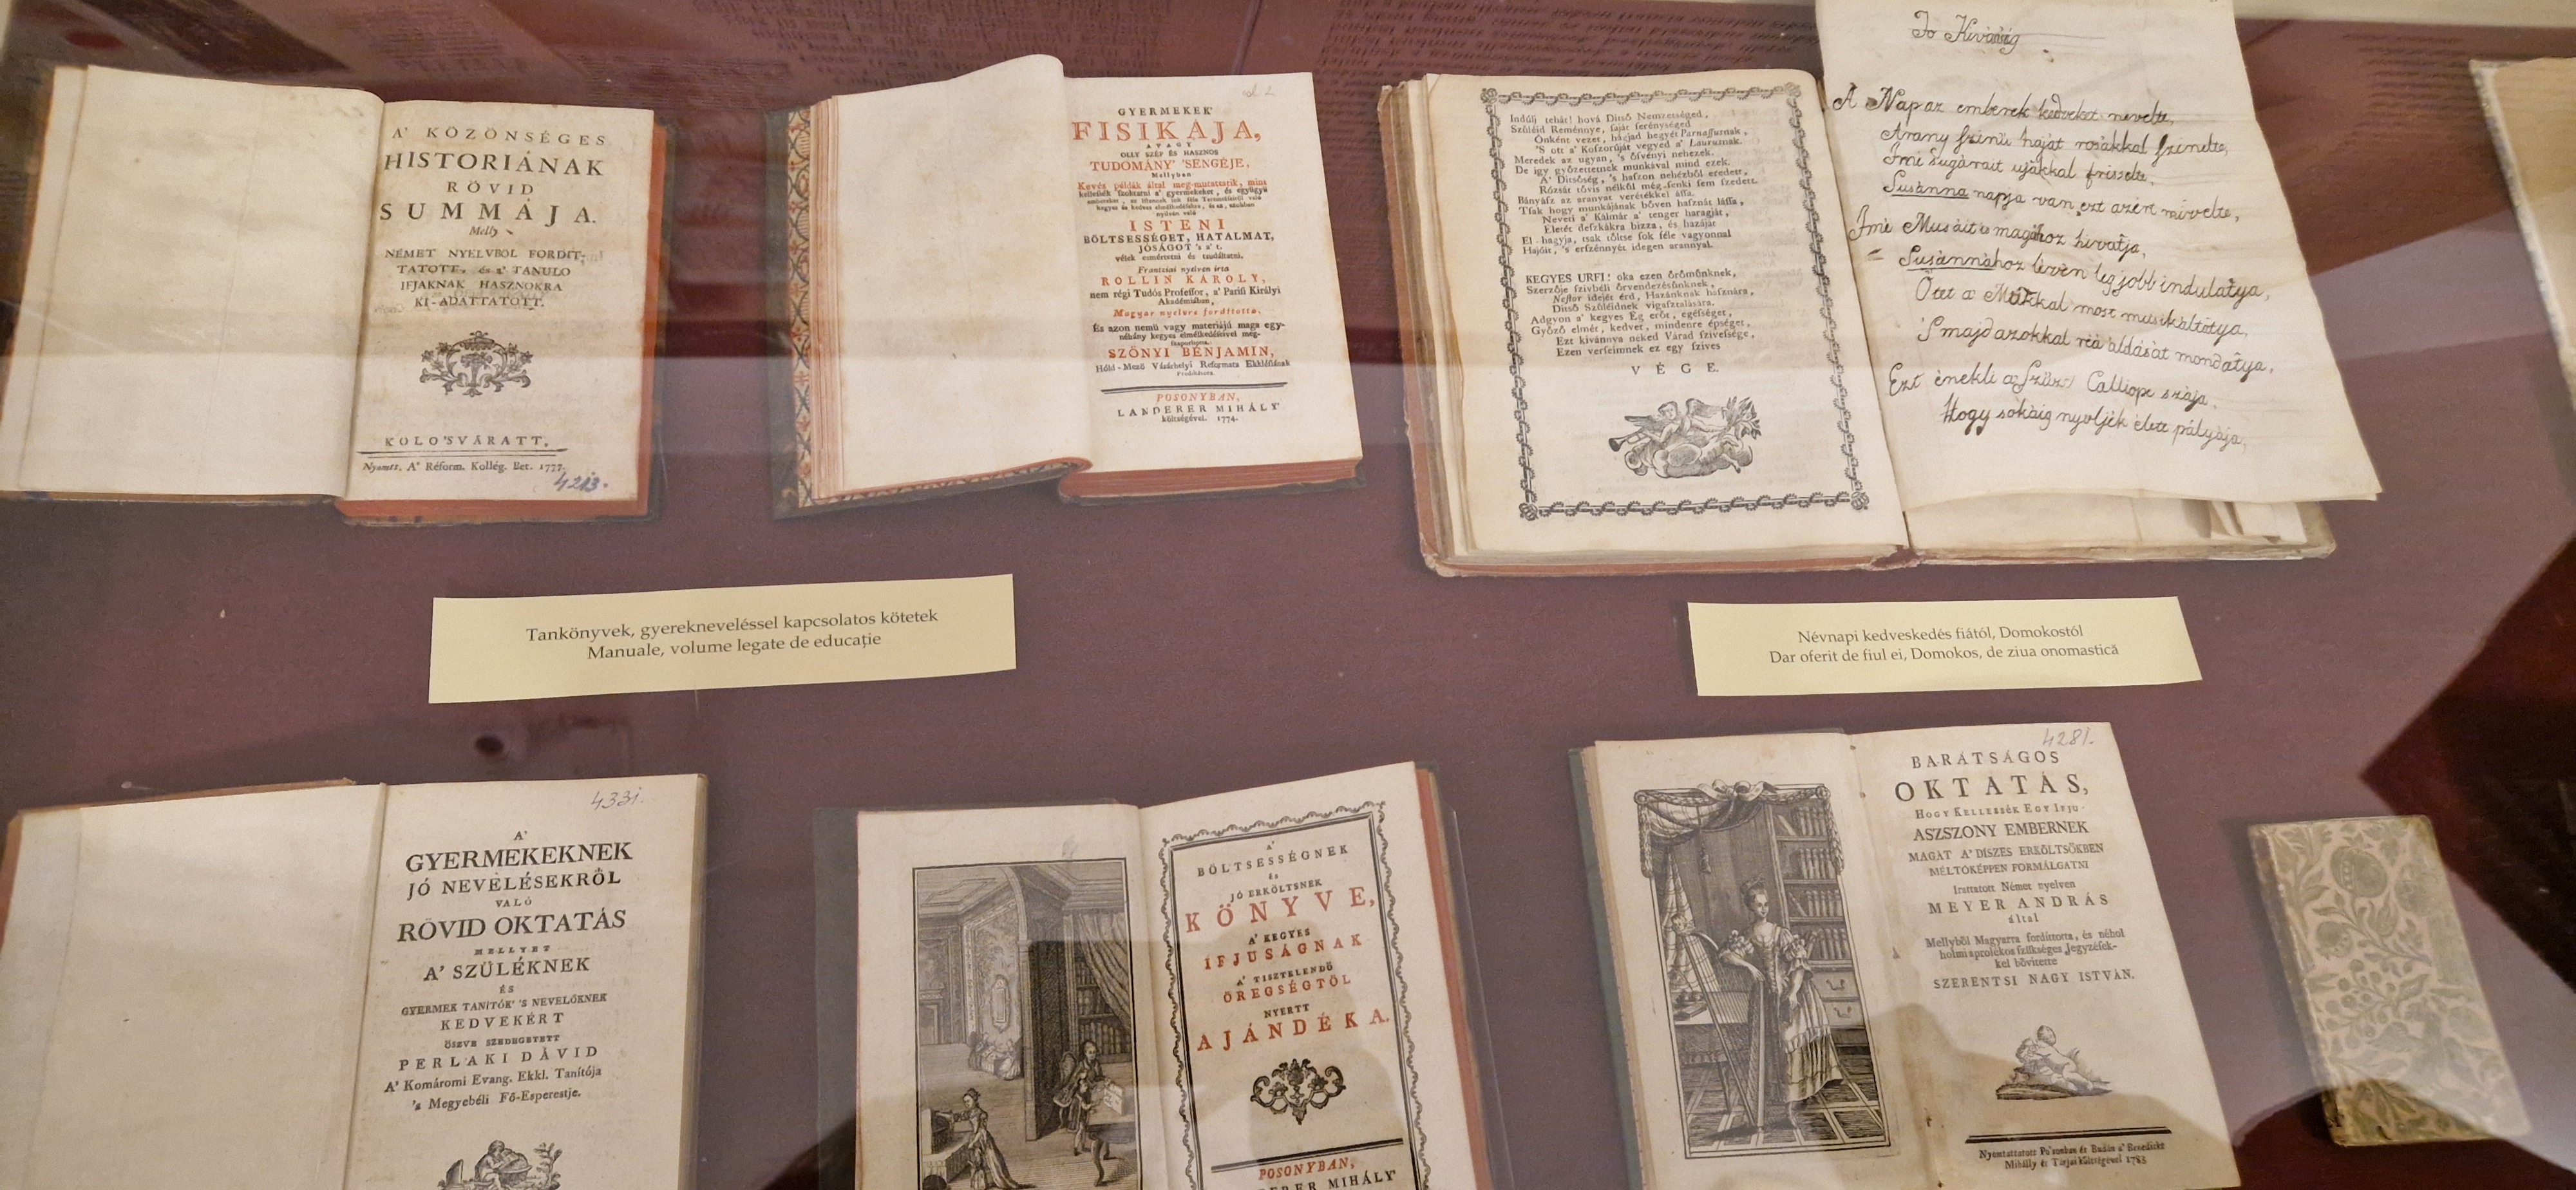 A' KÖZÖNSÉGES
HISTORIÁNAK
RÖVID
SUMMÁJA.
Melly
NÉMET NYELVBŐL FORDIT-
TATOTT, és a' TANULO
IFJAKNAK HASZNOKRA
KI-ADATTATOTT.
KOLO'SVÁRATT,
Nyomtt. A' Réform. Kollég. Bet. 1777.
4213.
GYERMEKEK'
FISIKAJA,
AVAGY
OLLY SZÉP ÉS HASZNOS
TUDOMÁNY' 'SENGÉJE,
Mellyben
Kevés példák által meg-mutattatik, mint
kellessék szoktatni a' gyermekeket, és együgyü
ISTENI
BÖLTSESSÉGET, HATALMAT,
JÓSÁGOT 's a' t.
vélek esmértetni és tsudáltatni,
Frantziai nyelven írta
ROLLIN KÁROLY,
nem régi Tudós Professor, a' Parisi Királyi
Akadémiában,
Magyar nyelvre fordította,
És azon nemü vagy materiájú maga egy-
néhány kegyes elmélkedésivel meg-
szaporította
SZŐNYI BENJÁMIN,
Hóld-Mezö Vásárhelyi Reformata Ekklésiának
Prédikátora.
POSONYBAN,
LANDERER MIHÁLY
költségével. 1774.
Indúlj tehát! hová Ditső Nemzettséged,
Szüléid Reménnye, saját serénységed
Önként vezet, hágjad hegyét Parnassusnak,
'S ott a' Koszorúját vegyed a' Laurusnak.
Meredek az ugyan, 's ösvényi nehezek.
De igy győzettetnek munkával mind ezek.
A' Ditsőség, 's haszon nehézből eredett,
Rózsát tövis nélkűl még-senki sem szedett.
Bányász az aranyat verétékkel ássa.
Tsak hogy munkájának bőven hasznát lássa,
Neveti a' Kálmár a' tenger haragját,
Életét deszkákra bízza, és hazáját
El-hagyja, tsak töltse sok féle vagyonnal
Hajóit, 's erszénnyét idegen arannyal.
KEGYES URFI! oka ezen örömünknek,
Szerzője szívbéli örvendezésünknek,
Nestor idejét érd, Hazánknak hasznára,
Ditső Szüléidnek vigasztalására.
Adgyon a' kegyes Ég erőt, egésséget,
Győző elmét, kedvet, mindenre épséget,
Ezt kivánnya neked Várad szívessége,
Ezen verseimnek ez egy szíves
VÉGE.
Jo Kivánság
A Nap az emberek kedveket nevelte,
Arany szinü haját rosákkal szinelte,
Imé sugárait ujjakkal frissélte,
Susánna napja van ezt azért mivelte,
Imé Musáit is magához hivatja,
Susánnához lévén leg jobb indulatya,
Ötet a Musákkal most musikáltatya,
'S majd azokkal reá áldását mondatya,
Ezt énekli a Szüz Calliope szája,
Hogy sokáig nyoljék élete pályája,
Tankönyvek, gyerekneveléssel kapcsolatos kötetek
Manuale, volume legate de educaţie
Névnapi kedveskedés fiától, Domokostól
Dar oferit de fiul ei, Domokos, de ziua onomastică
4331.
A'
GYERMEKEKNEK
JÓ NEVELÉSEKRŐL
VALÓ
RÖVID OKTATÁS
MELLYET
A' SZÜLÉKNEK
ÉS
GYERMEK TANÍTÓK' 'S NEVELŐKNEK
KEDVEKÉRT
ÖSZVE SZEDEGETETT
PERLAKI DÁVID
A' Komáromi Evang. Ekkl. Tanítója
's Megyebéli Fő-Esperestje.
A'
BÖLTSESSÉGNEK
és
JÓ ERKÖLTSNEK
KÖNYVE,
A' KEGYES
IFJUSÁGNAK
A' TISZTELENDŐ
ÖREGSÉGTŐL
NYERTT
AJÁNDÉKA.
POSONYBAN,
4281.
BARÁTSÁGOS
OKTATÁS,
HOGY KELLESSÉK EGY IFJU-
ASZSZONY EMBERNEK
MAGÁT A' DÍSZES ERKÖLTSÖKBEN
MÉLTÓKÉPPEN FORMÁLGATNI
Irattatott Német nyelven
MEYER ANDRÁS
által
Mellyből Magyarra fordíttotta, és néhol
holmi aprólékos szükséges Jegyzések-
kel bővítette
SZERENTSI NAGY ISTVÁN.
Nyomtattatott Po'sonban és Budán a' Benedickt
Mihály és Társai költségével 1783